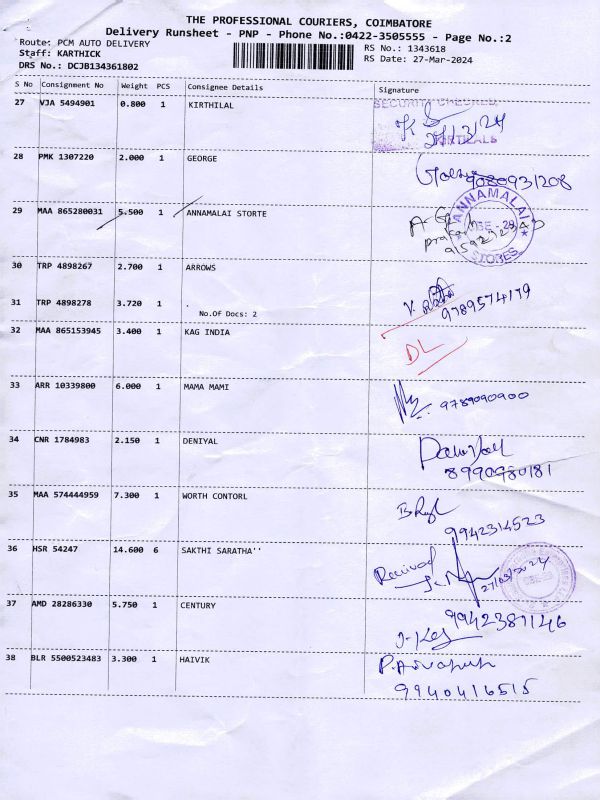 THE PROFESSIONAL COURIERS, COIMBATORE
Delivery Runsheet - PNP - Phone No.:0422-3505555 - Page No.:2
Route: PCM AUTO DELIVERY
RS No.: 1343618
Staff: KARTHICK
RS Date: 27-Mar-2024
DRS No.: DCJB134361802
S No Consignment No Weight PCS Consignee Details Signature
27 VJA 5494901 0.800 1 KIRTHILAL
SECURITY CHECKED
27/3/24
28 PMK 1307220 2.000 1 GEORGE
9080931208
29 MAA 865280031 5.500 1 ANNAMALAI STORTE
ANNAMALAI
STORES
30 TRP 4898267 2.700 1 ARROWS
31 TRP 4898278 3.720 1 .
No.Of Docs: 2
9789574179
32 MAA 865153945 3.400 1 KAG INDIA
DL
33 ARR 10339800 6.000 1 MAMA MAMI
9789090900
34 CNR 1784983 2.150 1 DENIYAL
8990980181
35 MAA 574444959 7.300 1 WORTH CONTORL
9942314523
36 HSR 54247 14.600 6 SAKTHI SARATHA''
Received
27/03/2024
37 AMD 28286330 5.750 1 CENTURY
9942387146
38 BLR 5500523483 3.300 1 HAIVIK
9940416515